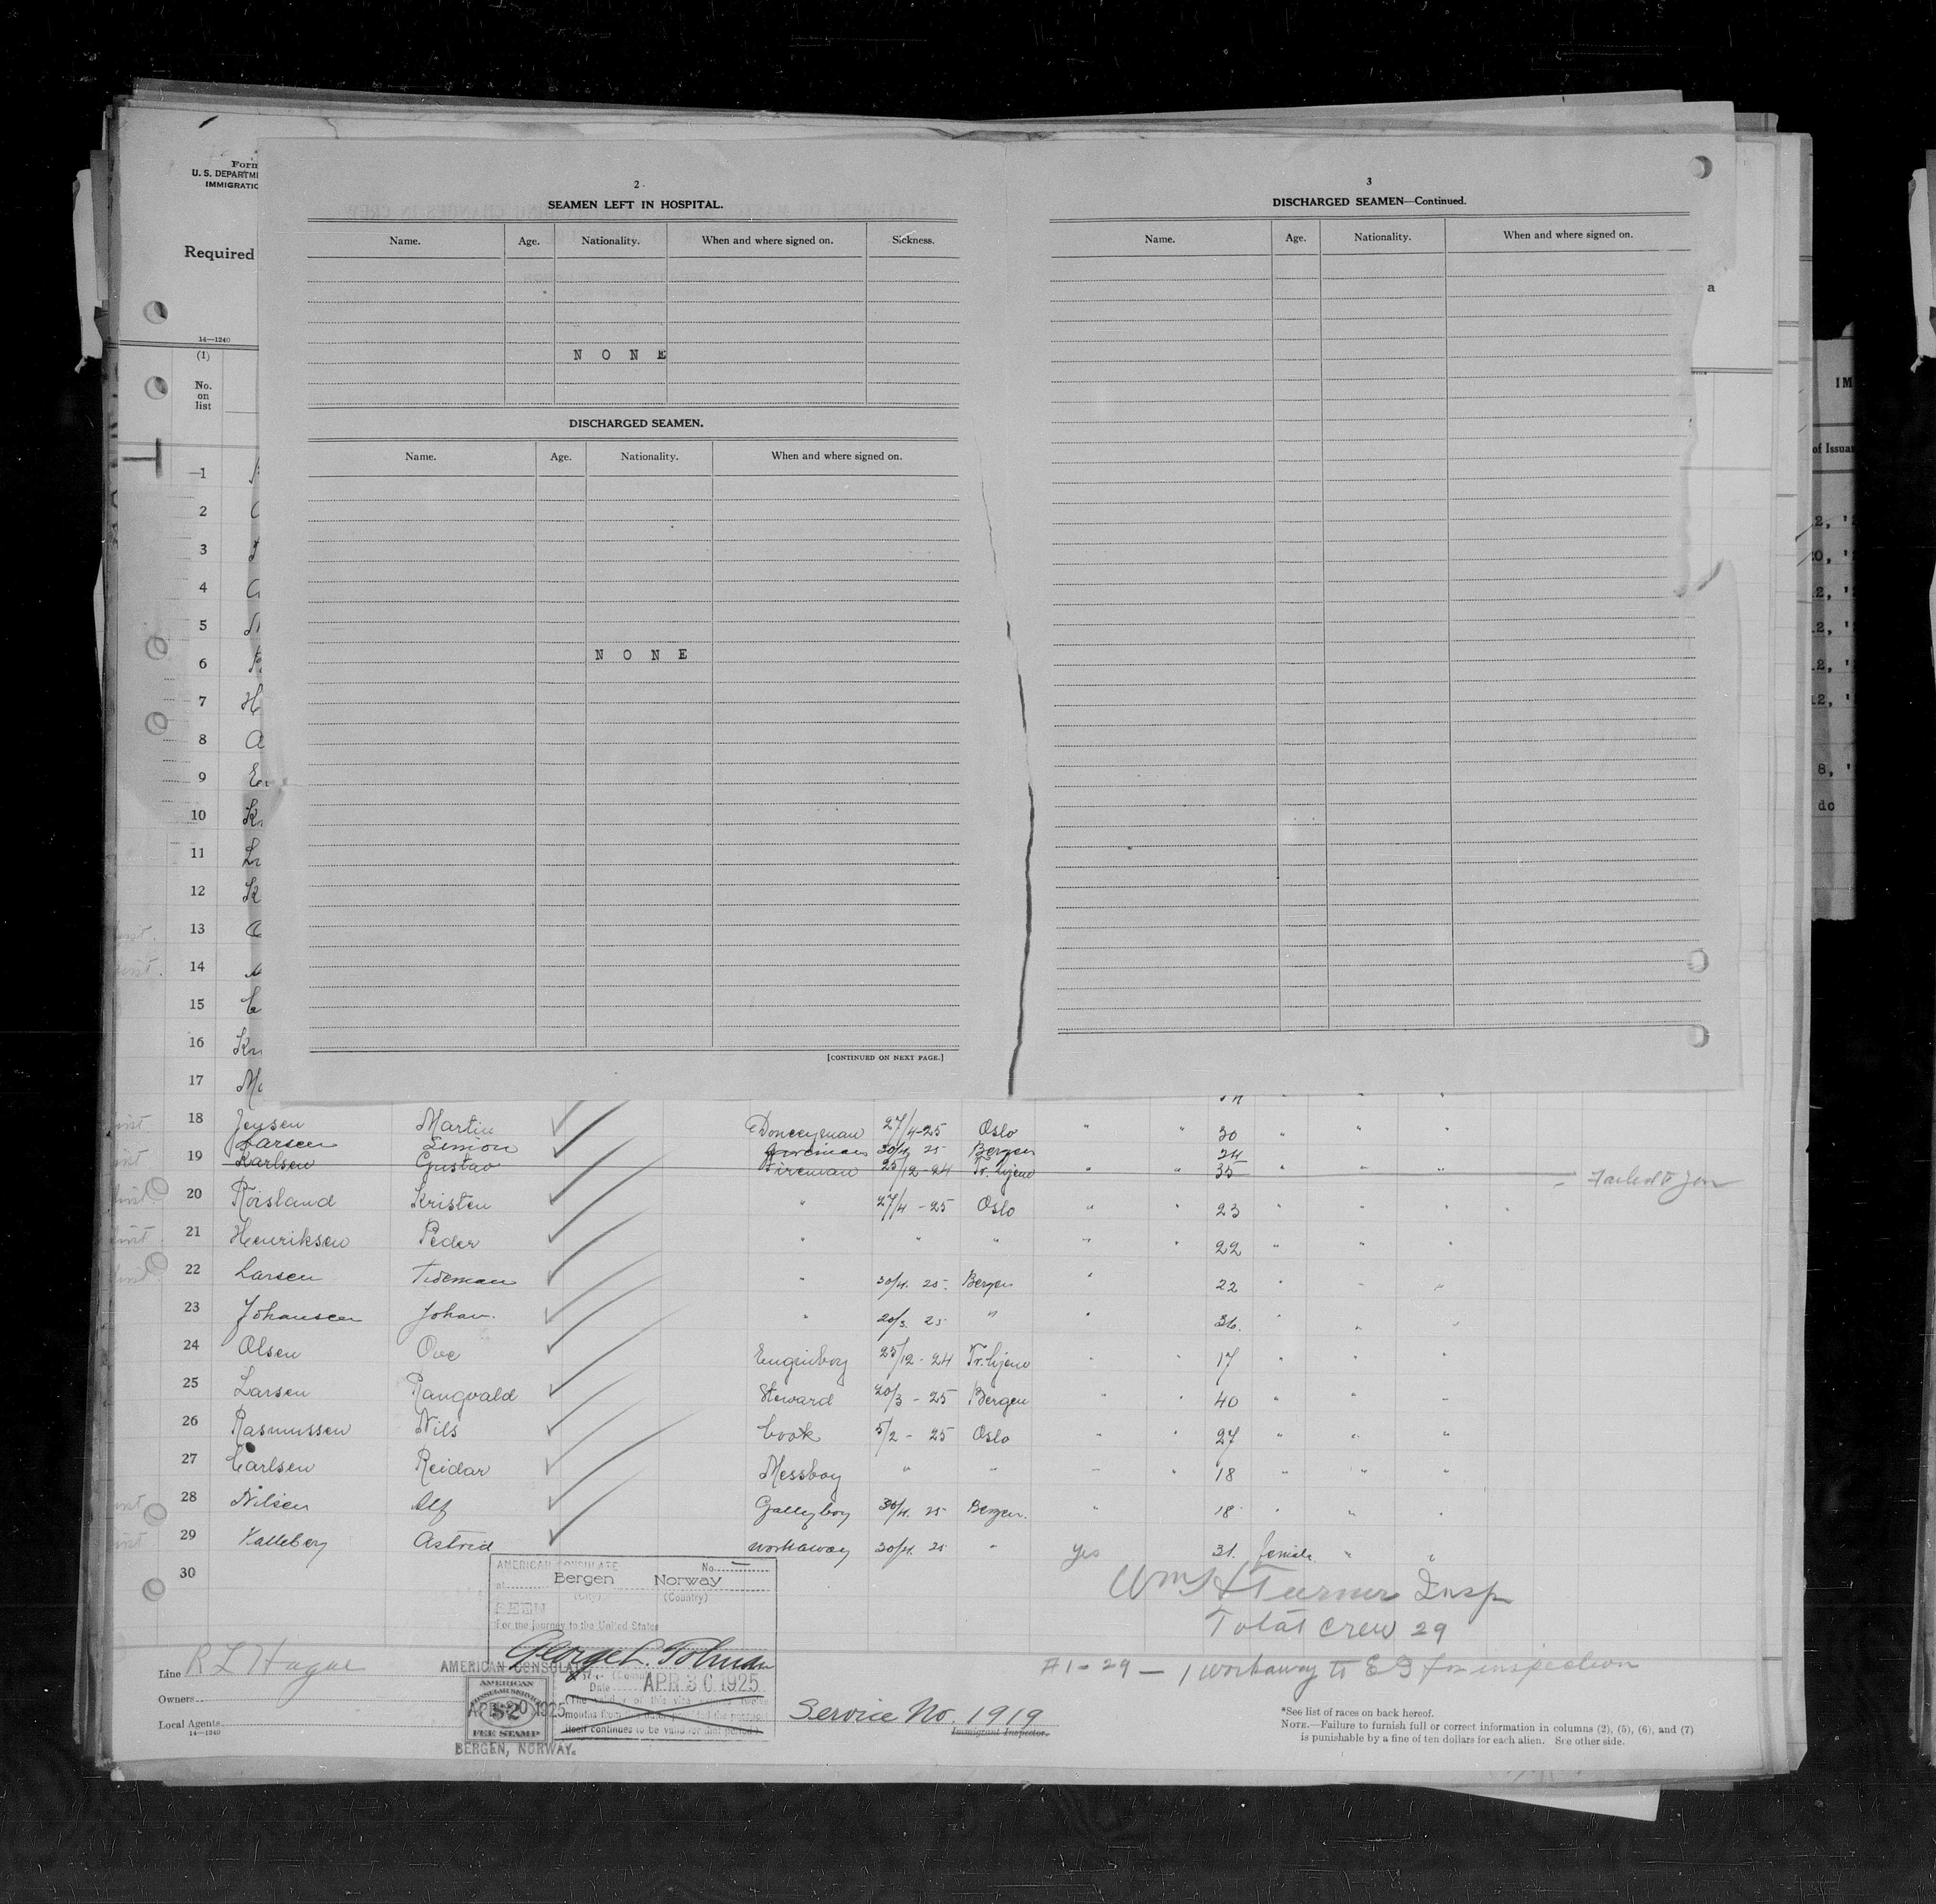 Form
U. S. DEPARTME
IMMIGRATIO
Required
14—1240
(1)
No.
on
list
2
SEAMEN LEFT IN HOSPITAL.
Name. Age. Nationality. When and where signed on. Sickness.
N O N E
DISCHARGED SEAMEN.
Name. Age. Nationality. When and where signed on.
N O N E
[CONTINUED ON NEXT PAGE.]
3
DISCHARGED SEAMEN—Continued.
Name. Age. Nationality. When and where signed on.
a
IM
of Issua
8, '
do
1
2
3
4
5
6
7 H
8 A
9
10
11
12 K
13
14
15
16
17
18 Jensen Martin Donkeyman 27/4-25 Oslo " " 30 " " "
Larsen Simon Fireman 30/4 25 Bergen 24
19 Karlsen Gustav Fireman 25/12-24 Tr.hjem " " 35 " " " Failed to Join
20 Röisland Kristen " 27/4-25 Oslo " " 23 " " "
21 Henriksen Peder " " " " " 22 " " "
22 Larsen Tideman " 30/4. 25. Bergen " 22 " " "
23 Johansen Johan. " 20/3. 25 " " 36. " " "
24 Olsen Ove Enginboy 25/12-24 Tr.hjem " " 17 " " "
25 Larsen Rangvald Steward 20/3-25 Bergen " " 40 " " "
26 Rasmussen Nils Cook 5/2-25 Oslo " " 27 " " "
27 Carlsen Reidar Messboy " " " " 18 " " "
28 Nilsen Alf Galleyboy 30/4. 25 Bergen. " 18 " " "
29 Valleberg Astrid workaway 30/4. 25 " yes 31. female " "
30
AMERICAN CONSULATE No.
at Bergen Norway
(City) (Country)
SEEN
For the journey to the United States
George L. Tolman
Date APR 30 1925
AMERICAN CONSULATE
AMERICAN
CONSULAR SERVICE
$2
FEE STAMP
APR 30 1925
BERGEN, NORWAY.
Wm H Turner Insp
Total crew 29
#1-29 — 1 workaway to EI for inspection
Line R L Hague
Owners
Local Agents
14—1240
Service No. 1919
Immigrant Inspector.
*See list of races on back hereof.
NOTE.—Failure to furnish full or correct information in columns (2), (5), (6), and (7)
is punishable by a fine of ten dollars for each alien. See other side.